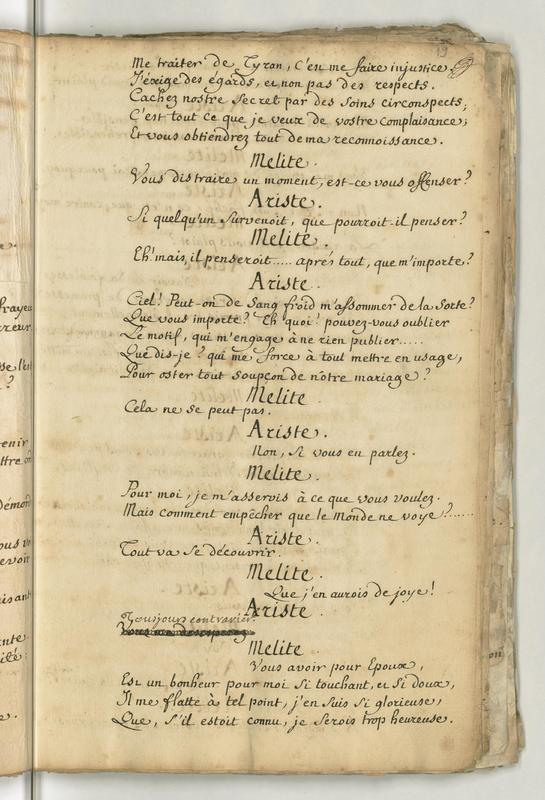 19
Me traiter de Tyran, C'est me faire injustice.
J'éxige des égards, et non pas des respects.
Cachez nostre Secret par des Soins circonspects;
C'est tout ce que je veux de vostre complaisance;
Et vous obtiendrez tout de ma reconnoissance.
Melite.
Vous distraire un moment, est-ce vous offenser?
Ariste.
Si quelqu'un Survenoit, que pourroit-il penser?
Melite.
Eh! mais, il penseroit..... aprés tout, que m'importe?
Ariste.
Ciel! Peut-on de Sang froid m'assommer de la Sorte?
Que vous importe? Eh quoi! pouvez-vous oublier
Le motif, qui m'engage à ne rien publier.....
Que dis-je? qui me force à tout mettre en usage,
Pour oster tout Soupçon de nôtre mariage?
Melite.
Cela ne Se peut pas.
Ariste.
Non, Si vous en parlez.
Melite.
Pour moi, je m'asservis à ce que vous voulez.
Mais comment empêcher que le Monde ne voye?.....
Ariste.
Tout va Se découvrir.
Melite.
Que j'en aurois de joye!
Ariste.
Toujours contrarier.
Melite.
Vous avoir pour Epoux,
Est un bonheur pour moi Si touchant, et Si doux,
Il me flatte à tel point, j'en Suis Si glorieuse,
Que, S'il estoit connu, je Serois trop heureuse.